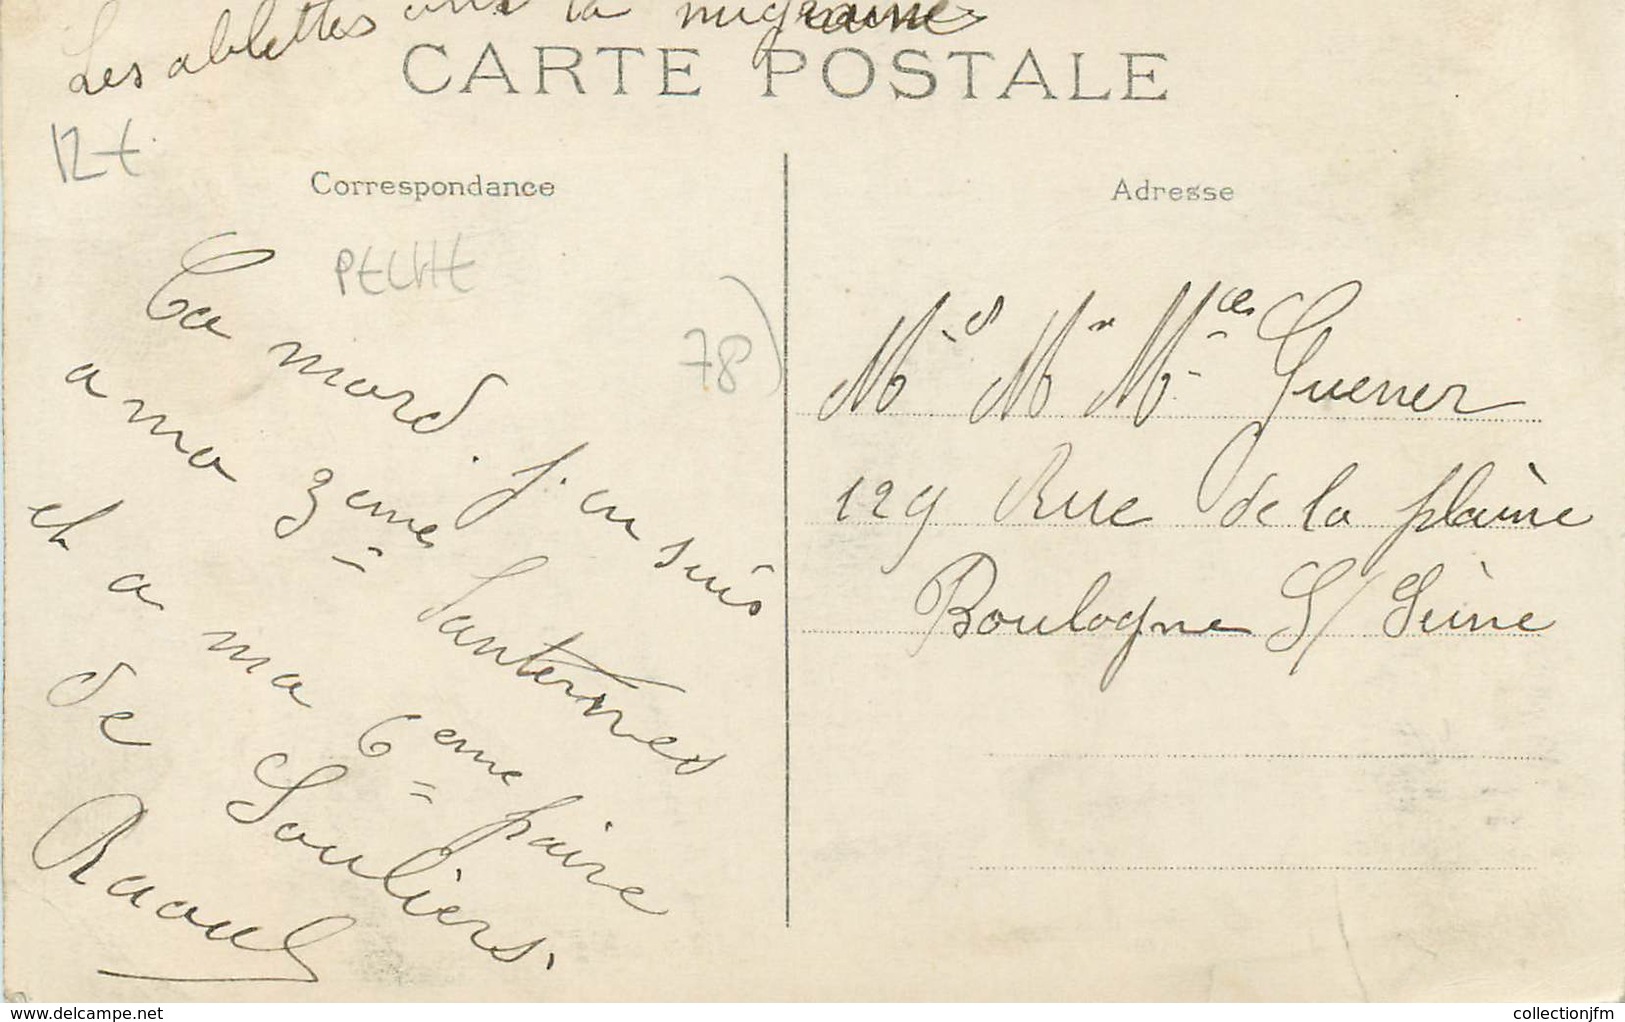 Les ablettes ont la migraine
CARTE POSTALE
12t
Correspondance
PECHE
78)
Ca mord. J'en suis
a ma 3eme lanternes
et a ma 6eme paire
de Souliers.
Raoul
Adresse
Guerrer
129 Rue de la plaine
Boulogne S/ Seine
www.delcampe.net
collectionjfm